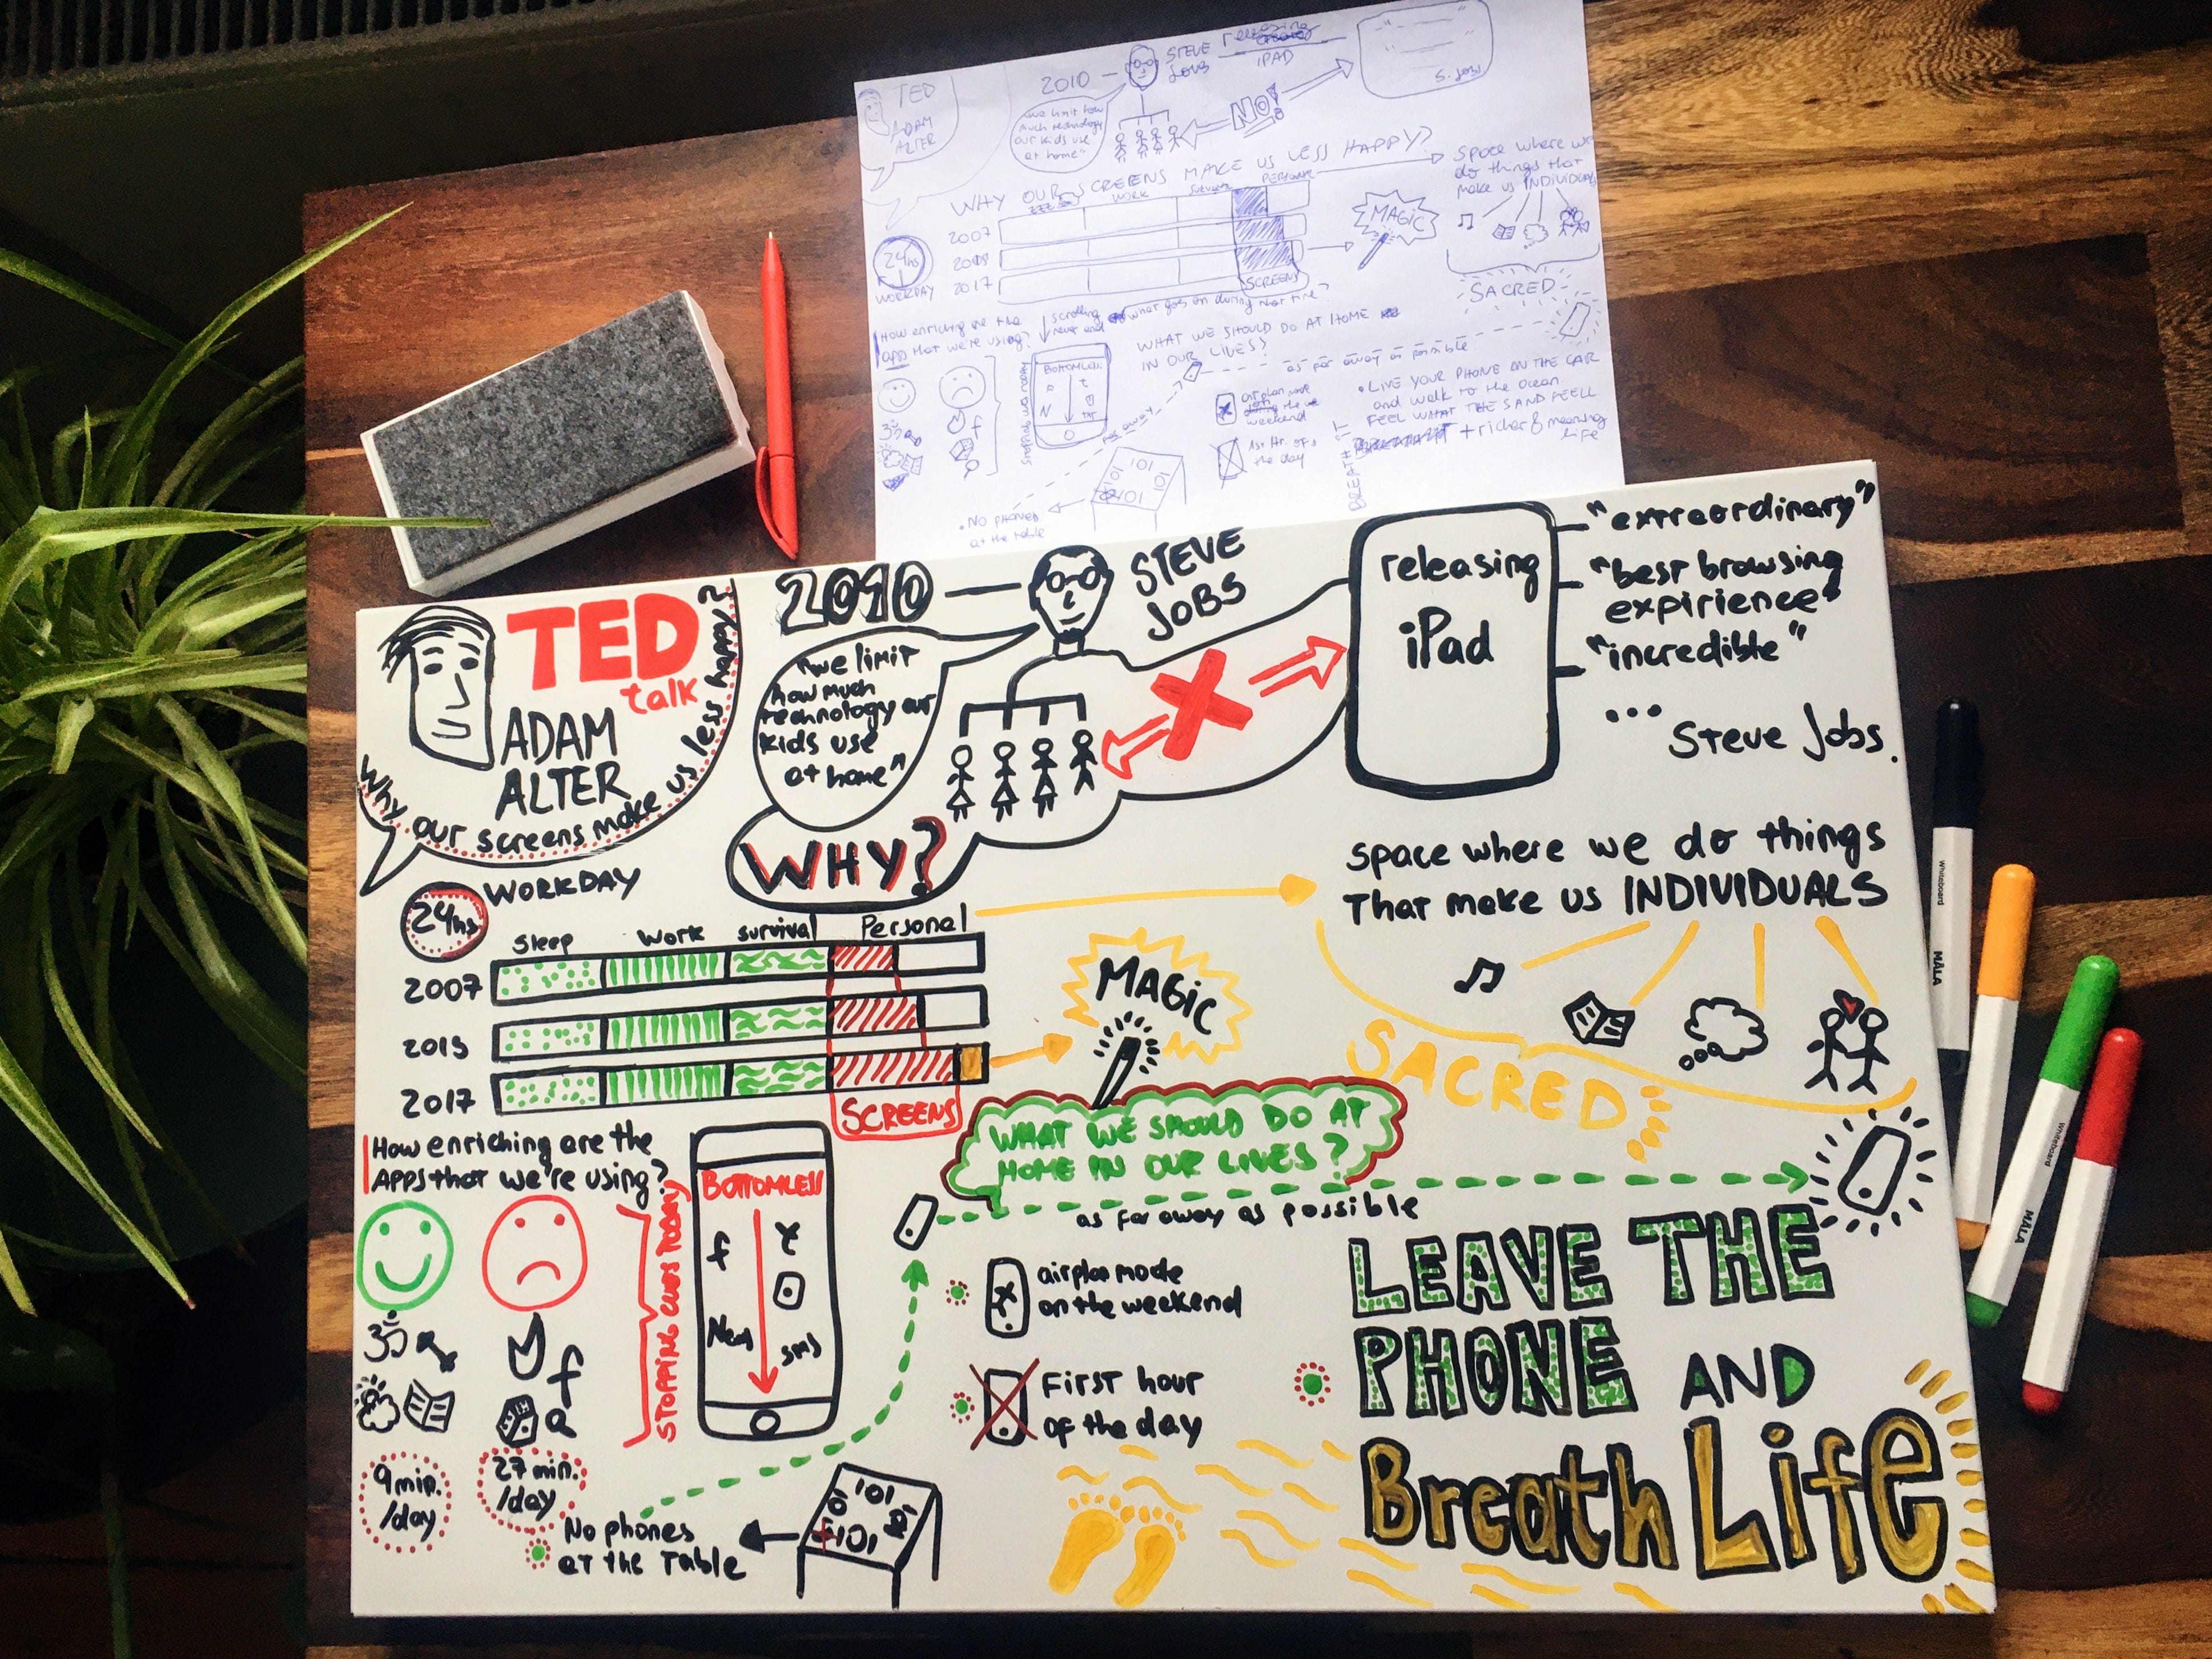 TED
ADAM
ALTER
2010
STEVE
JOBS
iPAD
S. Jobs
"we limit how
much technology
our kids use
at home"
NO!
WHY OUR SCREENS MAKE US LESS HAPPY?
WORK
SURVIVAL
PERSONAL
2007
2017
SCREENS
24hs
WORKDAY
MAGIC
Space where we
do things that
make us INDIVIDUALS
SACRED
How enriching are the
apps that we're using?
scrolling
never end
what goes on during that time?
BOTTOMLESS
WHAT WE SHOULD DO AT HOME
IN OUR LIVES?
as far away as possible
far away
weekend
1st Hr. of
the day
• LIVE YOUR PHONE ON THE CAR
and walk to the ocean
FEEL WHAT THE SAND FEELL
+ richer & meaning
life
BREATH IT
• NO PHONES
at the table
TED
talk
ADAM
ALTER
Why our screens make us less happy?
2010
STEVE
JOBS
"we limit
how much
technology our
kids use
at home"
WHY?
releasing
iPad
"extraordinary"
"best browsing
expirience"
"incredible"
... Steve Jobs.
24hs
WORKDAY
Sleep
Work
survival
Personal
2007
2015
2017
SCREENS
MAGIC
Space where we do things
That make us INDIVIDUALS
SACRED
How enriching are the
APPS that we're using?
STOPPING CUES TODAY
BOTTOMLESS
f
News
sms
WHAT WE SHOULD DO AT
HOME IN OUR LIVES?
as far away as possible
airplan mode
on the weekend
First hour
of the day
f
a
9 min.
/day
27 min.
/day
No phones
at the Table
LEAVE THE
PHONE AND
Breath Life
Whiteboard
MALA
Whiteboard
MALA